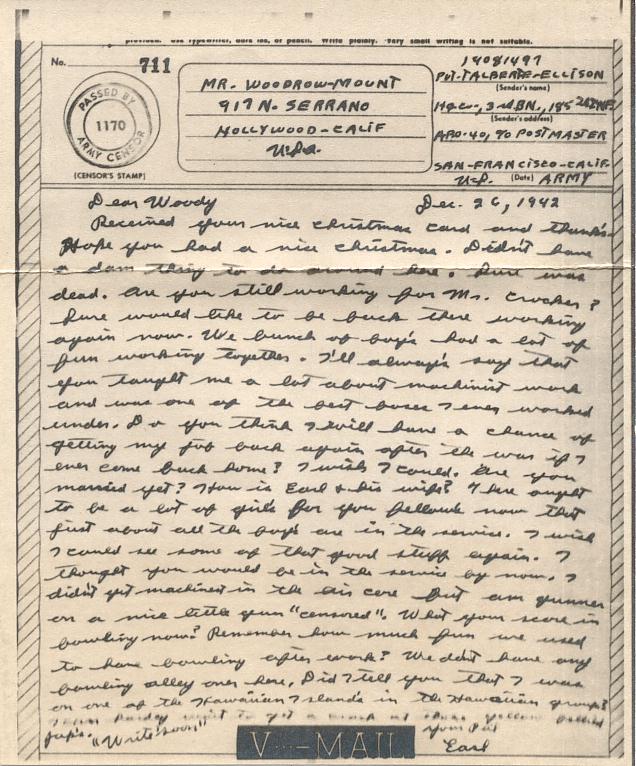 provided. Use typewriter, dark ink, or pencil. Write plainly. Very small writing is not suitable.
No. 711
PASSED BY
1170
ARMY CENSOR
(CENSOR'S STAMP)
MR. WOODROW-MOUNT
917 N. SERRANO
HOLLYWOOD-CALIF
U.S.A.
19081497
PVT. TALBERT E-ELLISON
(Sender's name)
HQ co, 3rd BN., 185th INF.
(Sender's address)
APO-40, % POSTMASTER
SAN-FRANCISCO-CALIF.
(Date)
U.S. ARMY
Dear Woody Dec. 26, 1942
Received your nice christmas card and thank's.
Hope you had a nice christmas. Didn't have
a dam thing to do around here. Sure was
dead. Are you still working for Mr. Crocker?
Sure would like to be back there working
again now. We bunch of boy's had a lot of
fun working together. I'll always say that
you taught me a lot about machinist work
and was one of the best boses I ever worked
under. Do you think I will have a chance of
getting my job back again after the war if I
ever come back home? I wish I could. Are you
married yet? How is Earl & his wife? There ought
to be a lot of girl's for you fellows now that
just about all the boy's are in the service. I wish
I could see some of that good stuff again. I
thought you would be in the service by now. I
didn't get machinest in the air core but am gunner
on a nice little gun "censored". What your score in
bowling now? Remember how much fun we used
to have bowling after work? We didn't have any
bowling alley over here. Did I tell you that I was
on one of the Hawaiian Islands in the Hawaiian group?
to get a at these yellow bellied
jap's. "Write soon" your Pal
Earl
V···-MAIL